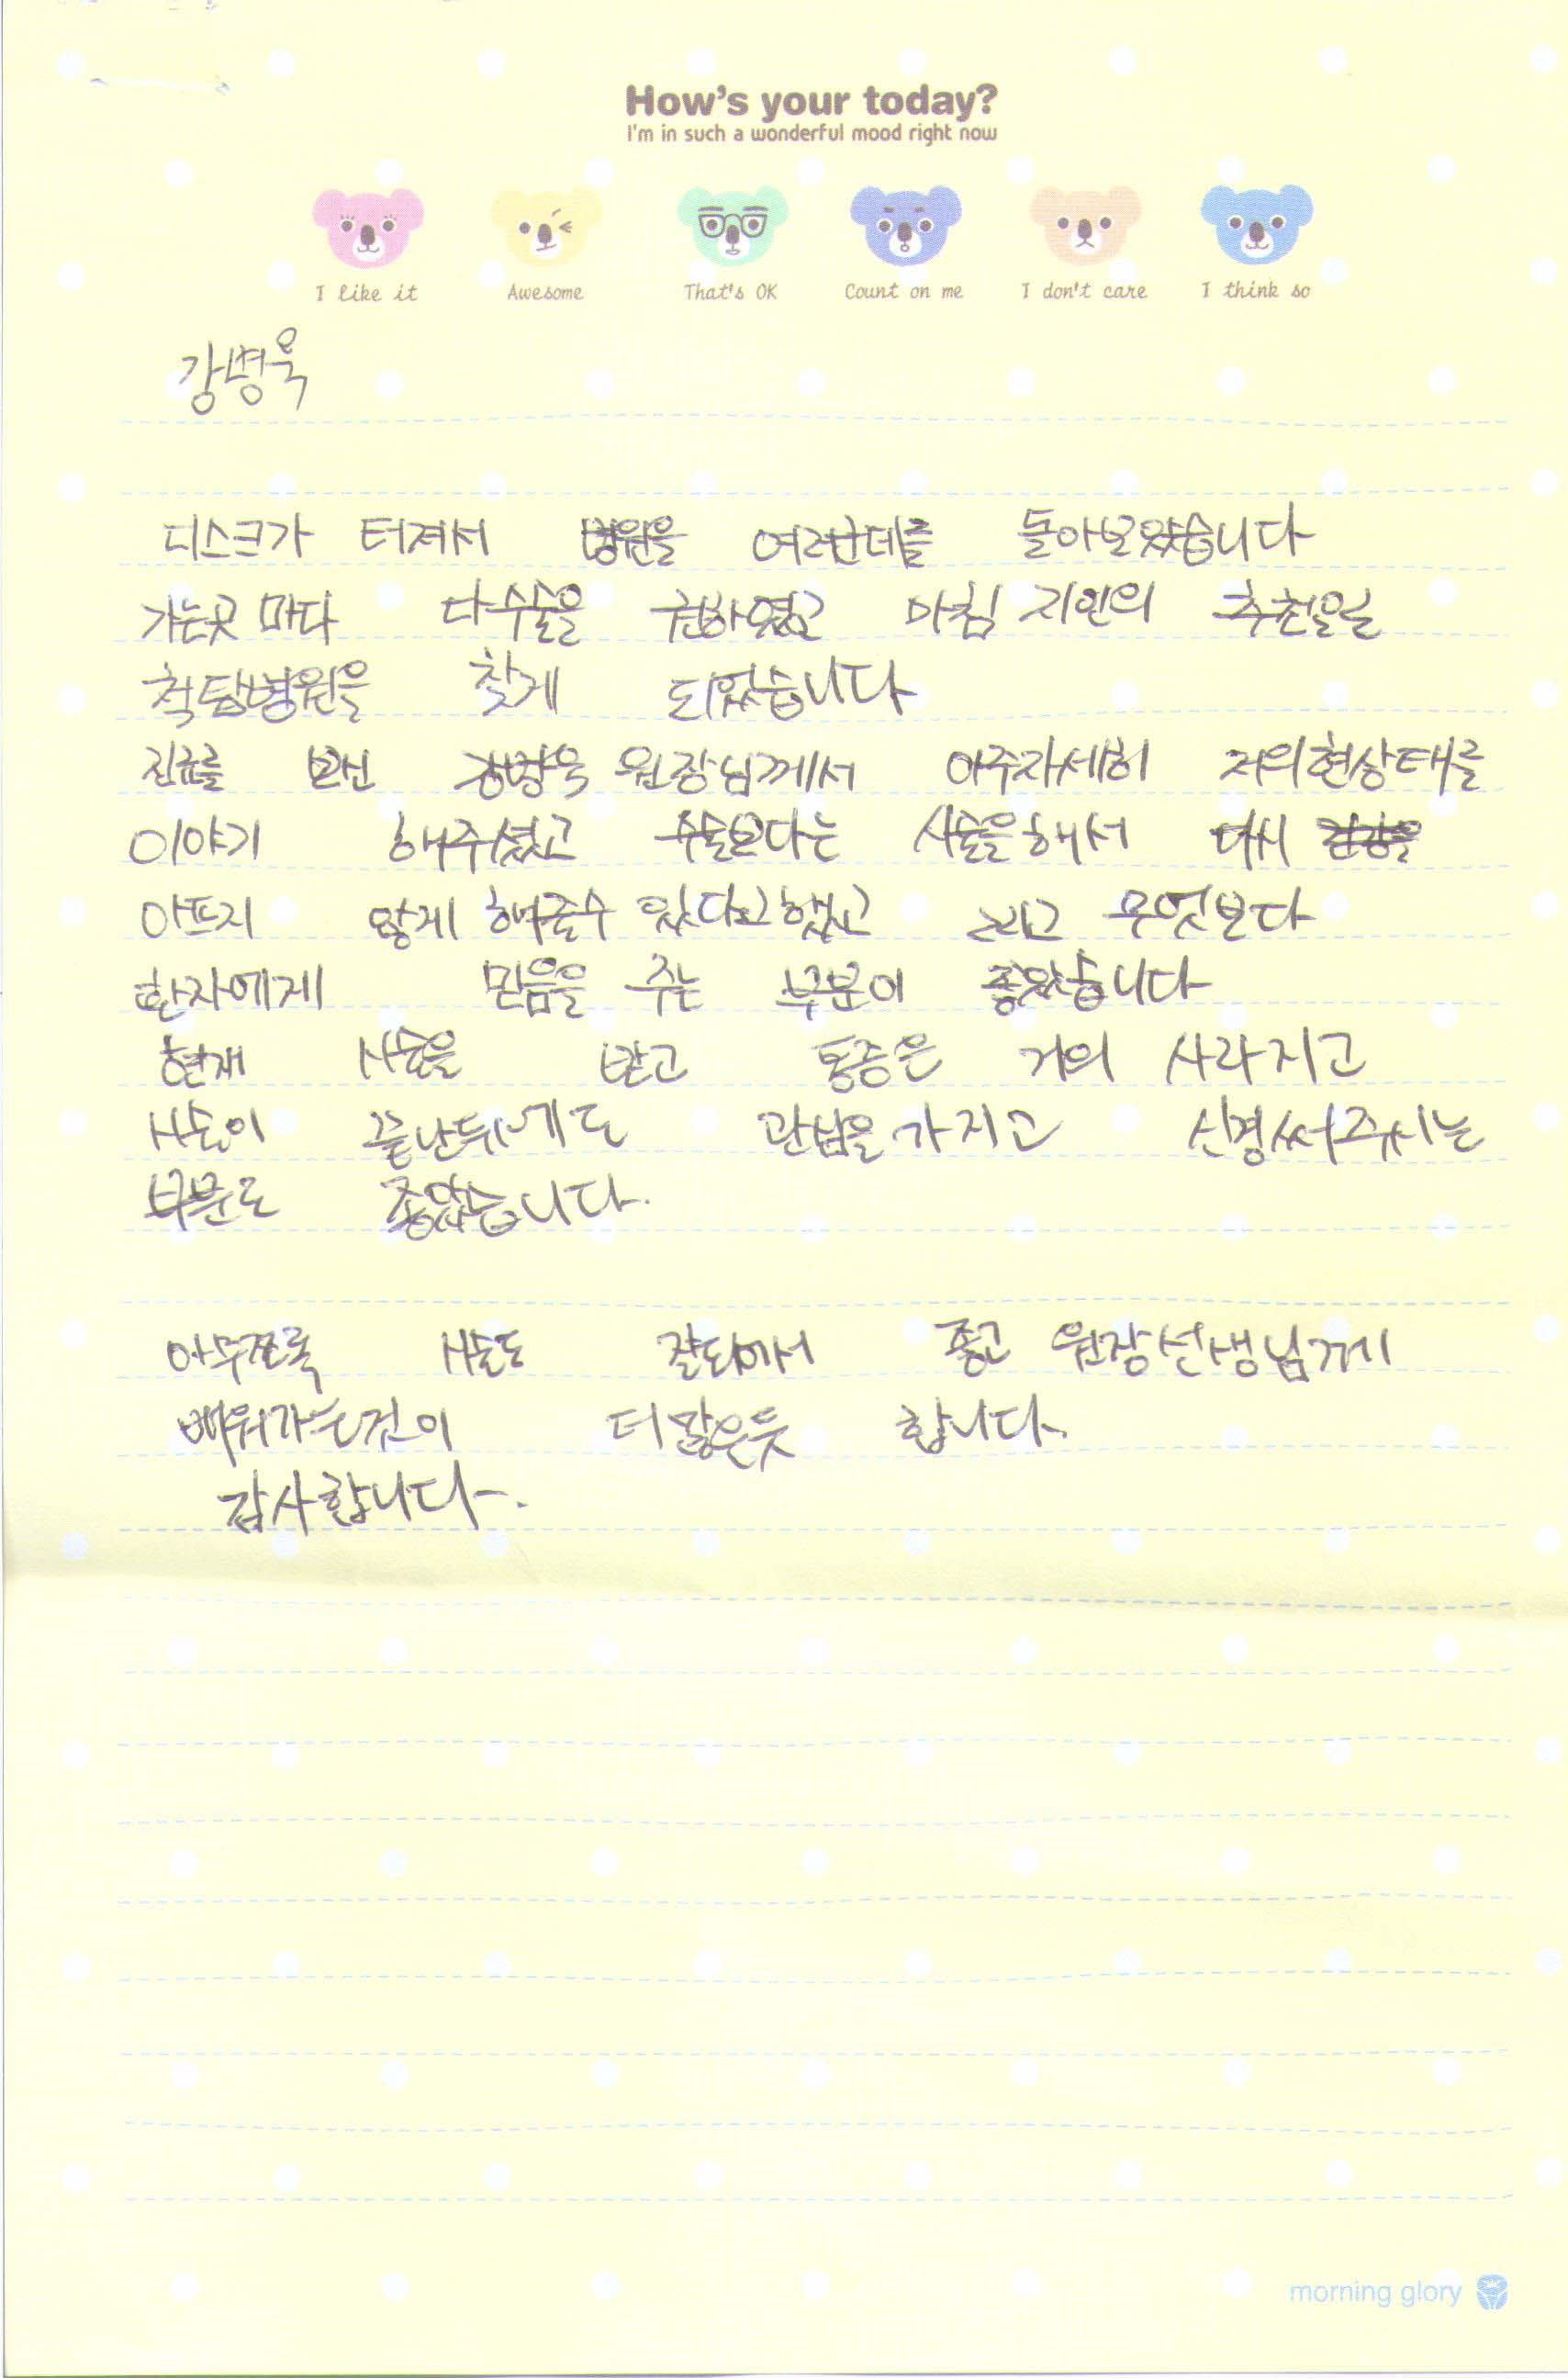 How's your today?
I'm in such a wonderful mood right now
I like it Awesome That's OK Count on me I don't care I think so
강병욱
디스크가 터져서 병원을 여러군데를 돌아보았습니다
가는곳 마다 다수술을 권하였고 마침 지인의 추천을
척탑병원을 찾게 되었습니다
진료를 보신 강병욱 원장님께서 아주자세히 저의현상태를
이야기 해주셨고 수술보다는 시술을해서 다시
아프지 않게 해줄수 있다고했고 그리고 무엇보다
환자에게 믿음을 주는 부분이 좋았습니다
현재 시술을 받고 통증은 거의 사라지고
시술이 끝난뒤에도 관심을가지고 신경써주시는
부분도 좋았습니다.
아무쪼록 시술도 잘되어서 좋고 원장선생님께
배워가는것이 더많은듯 합니다.
감사합니다.
morning glory